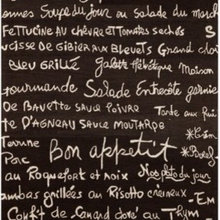 ennes Soupe du Jour ou salade du march
Fettucine au chèvre et Tomates sechés S
ucisse de gibier aux Bleuets Grand choi
Bleu grillé Galette Helvétique Maison
gourmande Salade Entrecôte garnie
de Bavette sauce Poivre Tarte aux frui
te D'Agneau sauce moutarde
Terrine
Pac Bon appetit
au Roquefort et noix
ambas grillées au Risotto
Confit de Canard doré au Thym